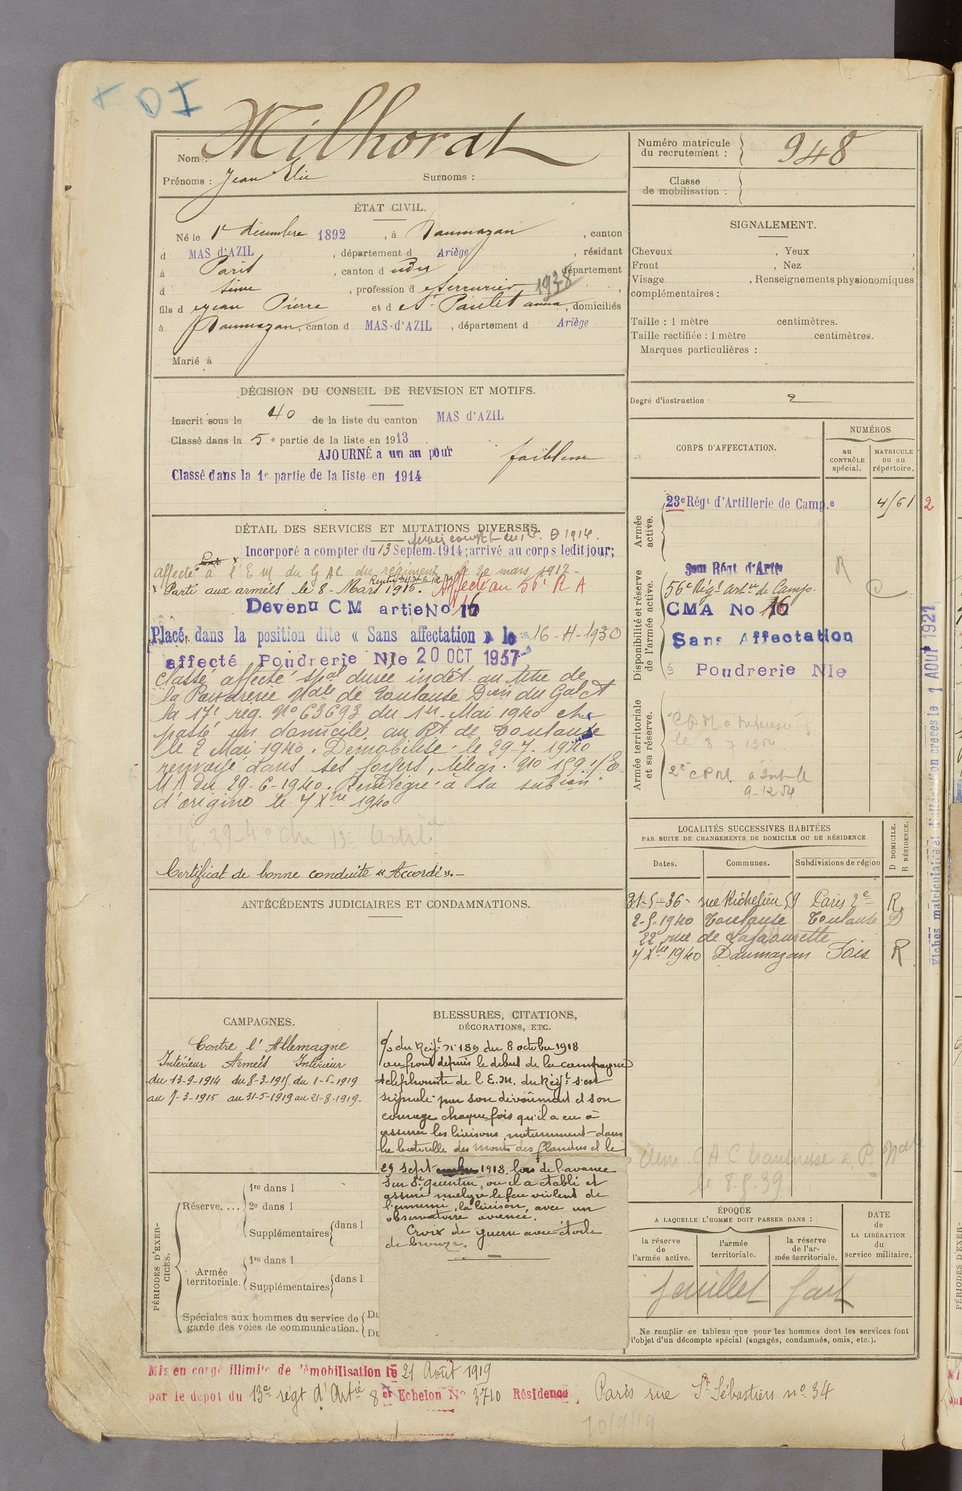 DI
Nom : Milhorat
Prénoms : Jean Elie Surnoms :
Numéro matricule du recrutement : 948
Classe de mobilisation :
ÉTAT CIVIL.
Né le 1er décembre 1892, à Daumazan, canton
d MAS d'AZIL, département d Ariège, résidant
à Paris, canton d dudit, département
d Seine, profession d serrurier 1938,
fils d Jean Pierre et d St Paulet anna, domiciliés
à Daumazan, canton d MAS-d'AZIL, département d Ariège
Marié à
SIGNALEMENT.
Cheveux , Yeux ,
Front , Nez ,
Visage , Renseignements physionomiques
complémentaires :
Taille : 1 mètre centimètres.
Taille rectifiée : 1 mètre centimètres.
Marques particulières :
Degré d'instruction : 2
DÉCISION DU CONSEIL DE REVISION ET MOTIFS.
Inscrit sous le 40 de la liste du canton MAS d'AZIL
Classé dans la 5e partie de la liste en 1913
AJOURNÉ a un an pour faiblesse
Classé dans la 1e partie de la liste en 1914
DÉTAIL DES SERVICES ET MUTATIONS DIVERSES.
Incorporé a compter du 13 Septem. 1914; arrivé au corps ledit jour;
affecté à l'E M du G AC du régiment le 20 mars 1917
Parti aux armées le 8 - Mars 1915. Affecté au 56e R A
Devenu C M artie No 16
Placé dans la position dite « Sans affectation » le 16-4-1930
affecté Poudrerie Nle 20 OCT 1937
Classé affecté spal durée indét. au titre de
la Poudrerie Nale de Toulouse Don du Gal Ct
la 17e rég. No 63693 du 1er Mai 1940
passé un domicile au Rt de Toulouse
le 2 Mai 1940. Démobilisé le 29.7.1940
renvoyé dans ses foyers, télég.
M A du 29-6-1940. Réintégré à la subion
d'origine le 7 Xbre 1940
Certificat de bonne conduite « Accordé ».
ANTÉCÉDENTS JUDICIAIRES ET CONDAMNATIONS.
CORPS D'AFFECTATION.
NUMÉROS
au CONTRÔLE spécial.
MATRICULE ou au répertoire.
Armée active.
23e Régt d'Artillerie de Camp.e 4161 2
Disponibilité et réserve de l'armée active.
56e Régt artie de Camp.
CMA No 16
Sans Affectation
Poudrerie Nle
R
Armée territoriale et sa réserve.
9-12-54
LOCALITÉS SUCCESSIVES HABITÉES
PAR SUITE DE CHANGEMENTS DE DOMICILE OU DE RÉSIDENCE.
Dates. Communes. Subdivisions de région
D DOMICILE. R RÉSIDENCE.
31-5-36 - rue Richelieu 59 Paris 2e R
2-5-1940 Toulouse Toulouse D
22 rue de Lafaourette
7 Xbre 1940 Daumazan Foix R
le 8.5.39
Fiches matriculaire et d'affectation créées le 1 AOUT 1921
CAMPAGNES.
Contre l'Allemagne
Intérieur Armées Intérieur
du 13-9-1914 du 8-3-1915 du 1-6-1919
au 7-3-1915 au 31-5-1919 au 21-8-1919.
BLESSURES, CITATIONS,
DÉCORATIONS, ETC.
O/ du Régt n° 189 du 8 octobre 1918
au front depuis le début de la campagne
téléphoniste de l'E.M. du Régt s'est
signalé par son dévoûment et son
courage chaque fois qu'il a eu à
assurer les liaisons, notamment dans
la bataille des monts des flandres et le
29 septembre 1918, lors de l'avance
sur St quentin, où il a établi et
assuré malgré le feu violent de
l'ennemi, la liaison, avec un
observatoire avancé.
Croix de guerre avec étoile
de bronze.
PÉRIODES D'EXERCICES.
Réserve.... 1re dans l
2e dans l
Supplémentaires dans l
Armée territoriale. 1re dans l
Supplémentaires dans l
Spéciales aux hommes du service de garde des voies de communication. Du
Du
ÉPOQUE
A LAQUELLE L'HOMME DOIT PASSER DANS :
la réserve de l'armée active.
l'armée territoriale.
la réserve de l'armée territoriale.
DATE DE LA LIBÉRATION du service militaire.
feuillet fait
Ne remplir ce tableau que pour les hommes dont les services font
l'objet d'un décompte spécial (engagés, condamnés, omis, etc.).
Mis en congé illimité de démobilisation le 21 Août 1919
par le dépot du 13e regt d'Artie 8 er Echelon No 3740 Résidence, Paris rue St Sébastien no 34